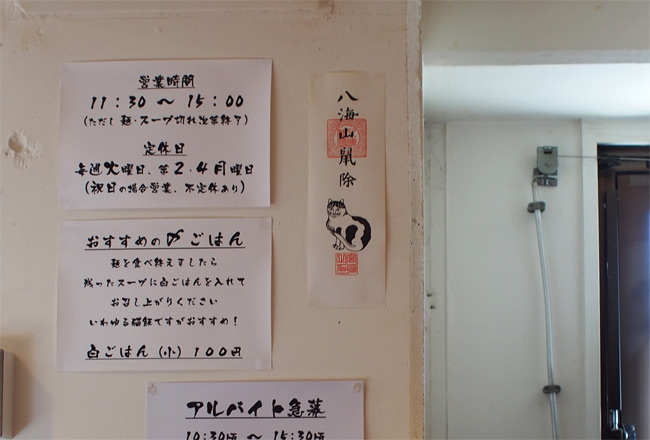 営業時間
11:30 〜 15:00
(ただし 麺・スープ切れ次第終了)
定休日
毎週火曜日、第2・4月曜日
(祝日の場合営業、不定休あり)
おすすめの〆ごはん
麺を食べ終えましたら
残ったスープに白ごはんを入れて
お召し上がりください
いわゆる猫飯ですがおすすめ!
白ごはん (小) 100円
アルバイト急募
10:30頃 〜 15:30頃
八海山鼠除